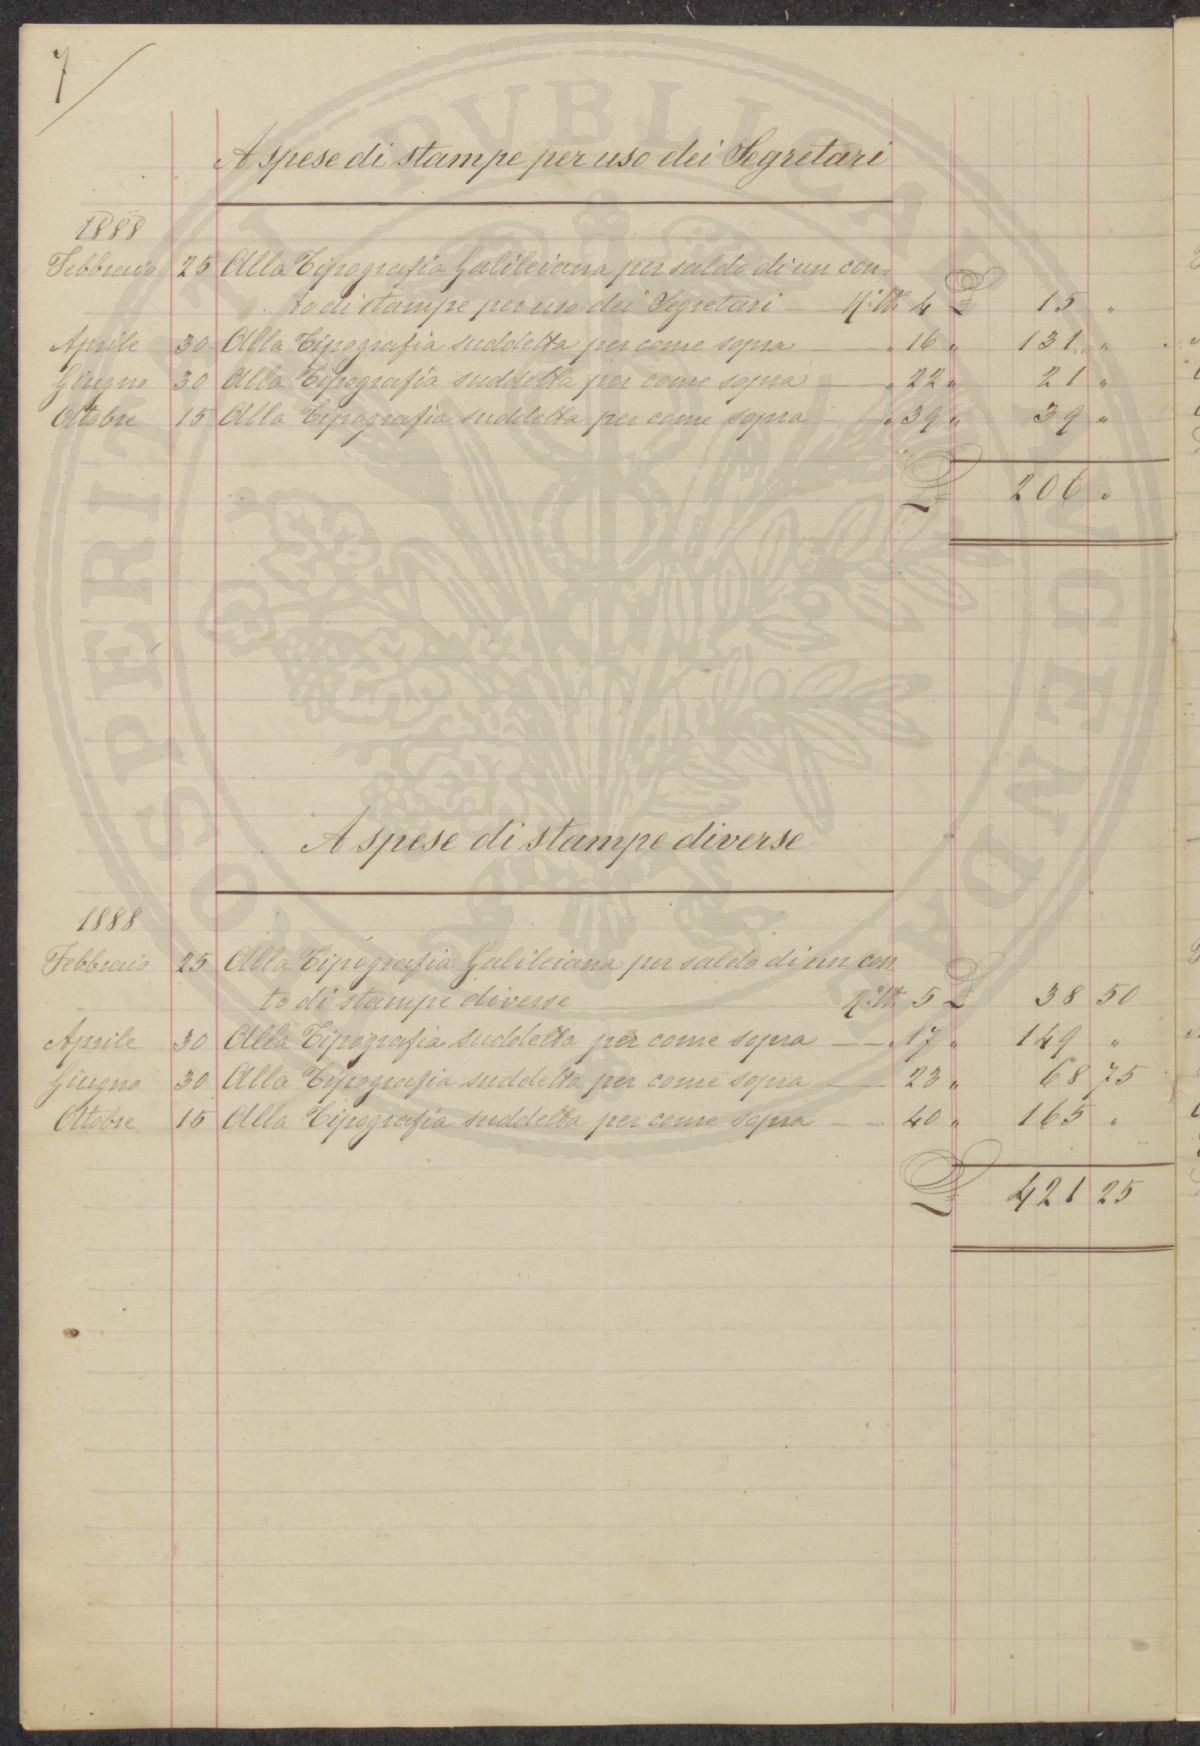 7
A spese di stampe per uso dei Segretari
1888
Febbraio 25 Alla Tipografia Galileiana per saldo di un con-
to di stampe per uso dei Segretari — N.° M. 4 £ 15 "
Aprile 30 Alla Tipografia suddetta per come sopra — " 16 " 131 "
Giugno 30 Alla Tipografia suddetta per come sopra — " 22 " 21 "
Ottobre 15 Alla Tipografia suddetta per come sopra — " 39 " 39 "
£ 206 "
A spese di stampe diverse
1888
Febbraio 25 Alla Tipografia Galileiana per saldo di un con
to di stampe diverse — N.° M. 5 £ 38 50
Aprile 30 Alla Tipografia suddetta per come sopra — " 17 " 149 "
Giugno 30 Alla Tipografia suddetta per come sopra — 23 " 68 75
Ottobre 15 Alla Tipografia suddetta per come sopra — 40 " 165 "
£ 421 25
PROSPERITATI PVBLICAE AVGENDAE